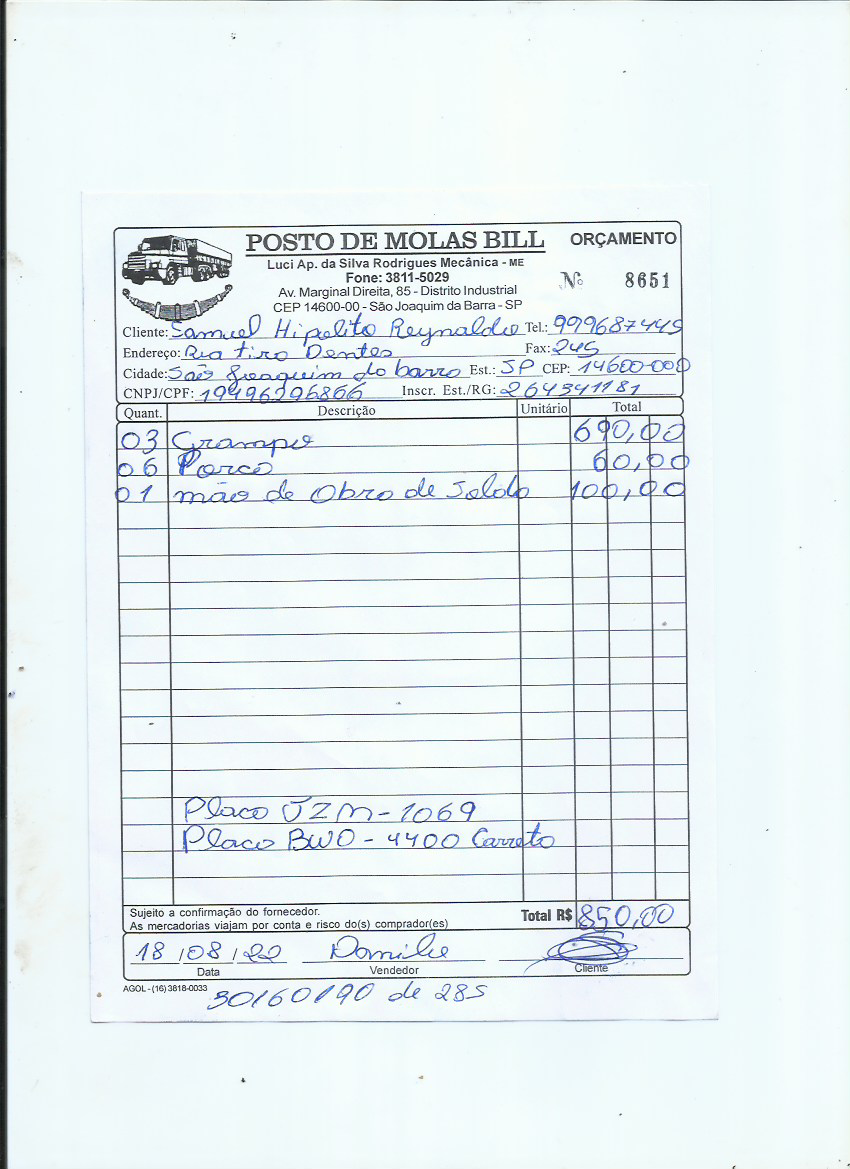 POSTO DE MOLAS BILL
ORÇAMENTO
Luci Ap. da Silva Rodrigues Mecânica - ME
Fone: 3811-5029
Nº 8651
Av. Marginal Direita, 85 - Distrito Industrial
CEP 14600-00 - São Joaquim da Barra - SP
Cliente: Samuel Hipolito Reynaldo Tel.: 999687449
Endereço: Rua tiro Dentes Fax: 245
Cidade: São Joaquim do barra Est.: SP CEP: 14600-000
CNPJ/CPF: 19496296866 Inscr. Est./RG: 264341181
Quant. Descrição Unitário Total
03 Grampo 690,00
06 Porca 60,00
01 mão de Obra de Solda 100,00
Placa JZM-1069
Placa BWO-4400 Carreta
Sujeito a confirmação do fornecedor.
As mercadorias viajam por conta e risco do(s) comprador(es)
Total R$ 850,00
18/08/22
Data Vendedor Cliente
AGOL - (16) 3818-0033
30/60/90 de 285